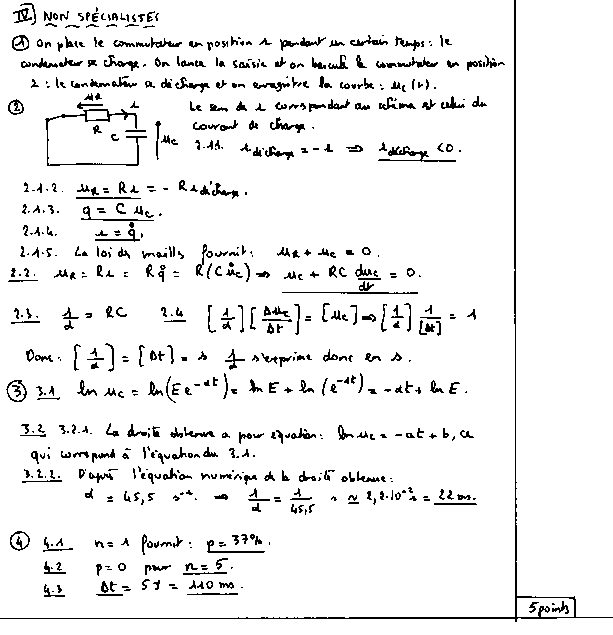 IV) NON SPÉCIALISTES
① On place le commutateur en position 1 pendant un certain temps : le
condensateur se charge. On lance la saisie et on bascule le commutateur en position
2 : le condensateur se décharge et on enregistre la courbe : uc(t).
② uR i R C uc Le sens de i correspondant au schéma est celui du
courant de charge.
2.1.1. i décharge = -i ⇒ i décharge < 0.
2.1.2. uR = Ri = - R i décharge.
2.1.3. q = C uc.
2.1.4. i = q̊.
2.1.5. La loi des mailles fournit : uR + uc = 0.
2.2. uR = Ri = Rq̊ = R(C ůc) ⇒ uc + RC duc/dt = 0.
2.3. 1/α = RC 2.4 [1/α] [Δuc/Δt] = [uc] ⇒ [1/α] 1/[Δt] = 1
Donc : [1/α] = [Δt] = s 1/α s'exprime donc en s.
③ 3.1 ln uc = ln(E e^-αt) = ln E + ln(e^-αt) = -αt + ln E.
3.2 3.2.1. La droite obtenue a pour équation : ln uc = -at + b, ce
qui correspond à l'équation du 3.1.
3.2.2. D'après l'équation numérique de la droite obtenue :
α = 45,5 s⁻¹ ⇒ 1/α = 1/45,5 s ≃ 2,2.10⁻² s = 22 ms.
④ 4.1 n = 1 fournit : p = 37%.
4.2 p = 0 pour n = 5.
4.3 Δt = 5 τ = 110 ms.
5 points